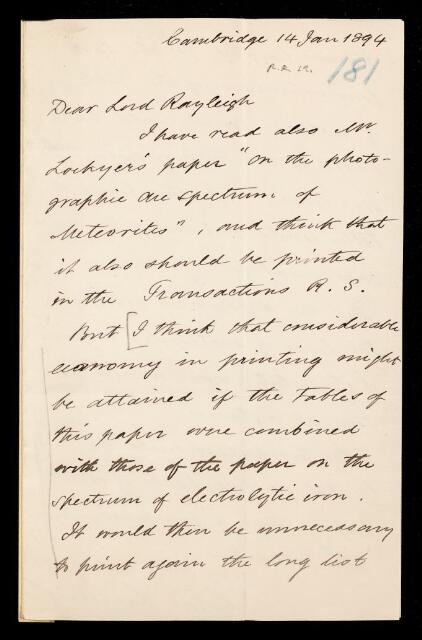 Cambridge 14 Jan 1894
R.R. 12. 181
Dear Lord Rayleigh
I have read also Mr.
Lockyer's paper "on the photo-
graphic arc spectrum of
Meteorites", and think that
it also should be printed
in the Transactions R. S.
But [I think that considerable
economy in printing might
be attained if the Tables of
this paper were combined
with those of the paper on the
spectrum of electrolytic iron.
It would then be unnecessary
to print again the long list